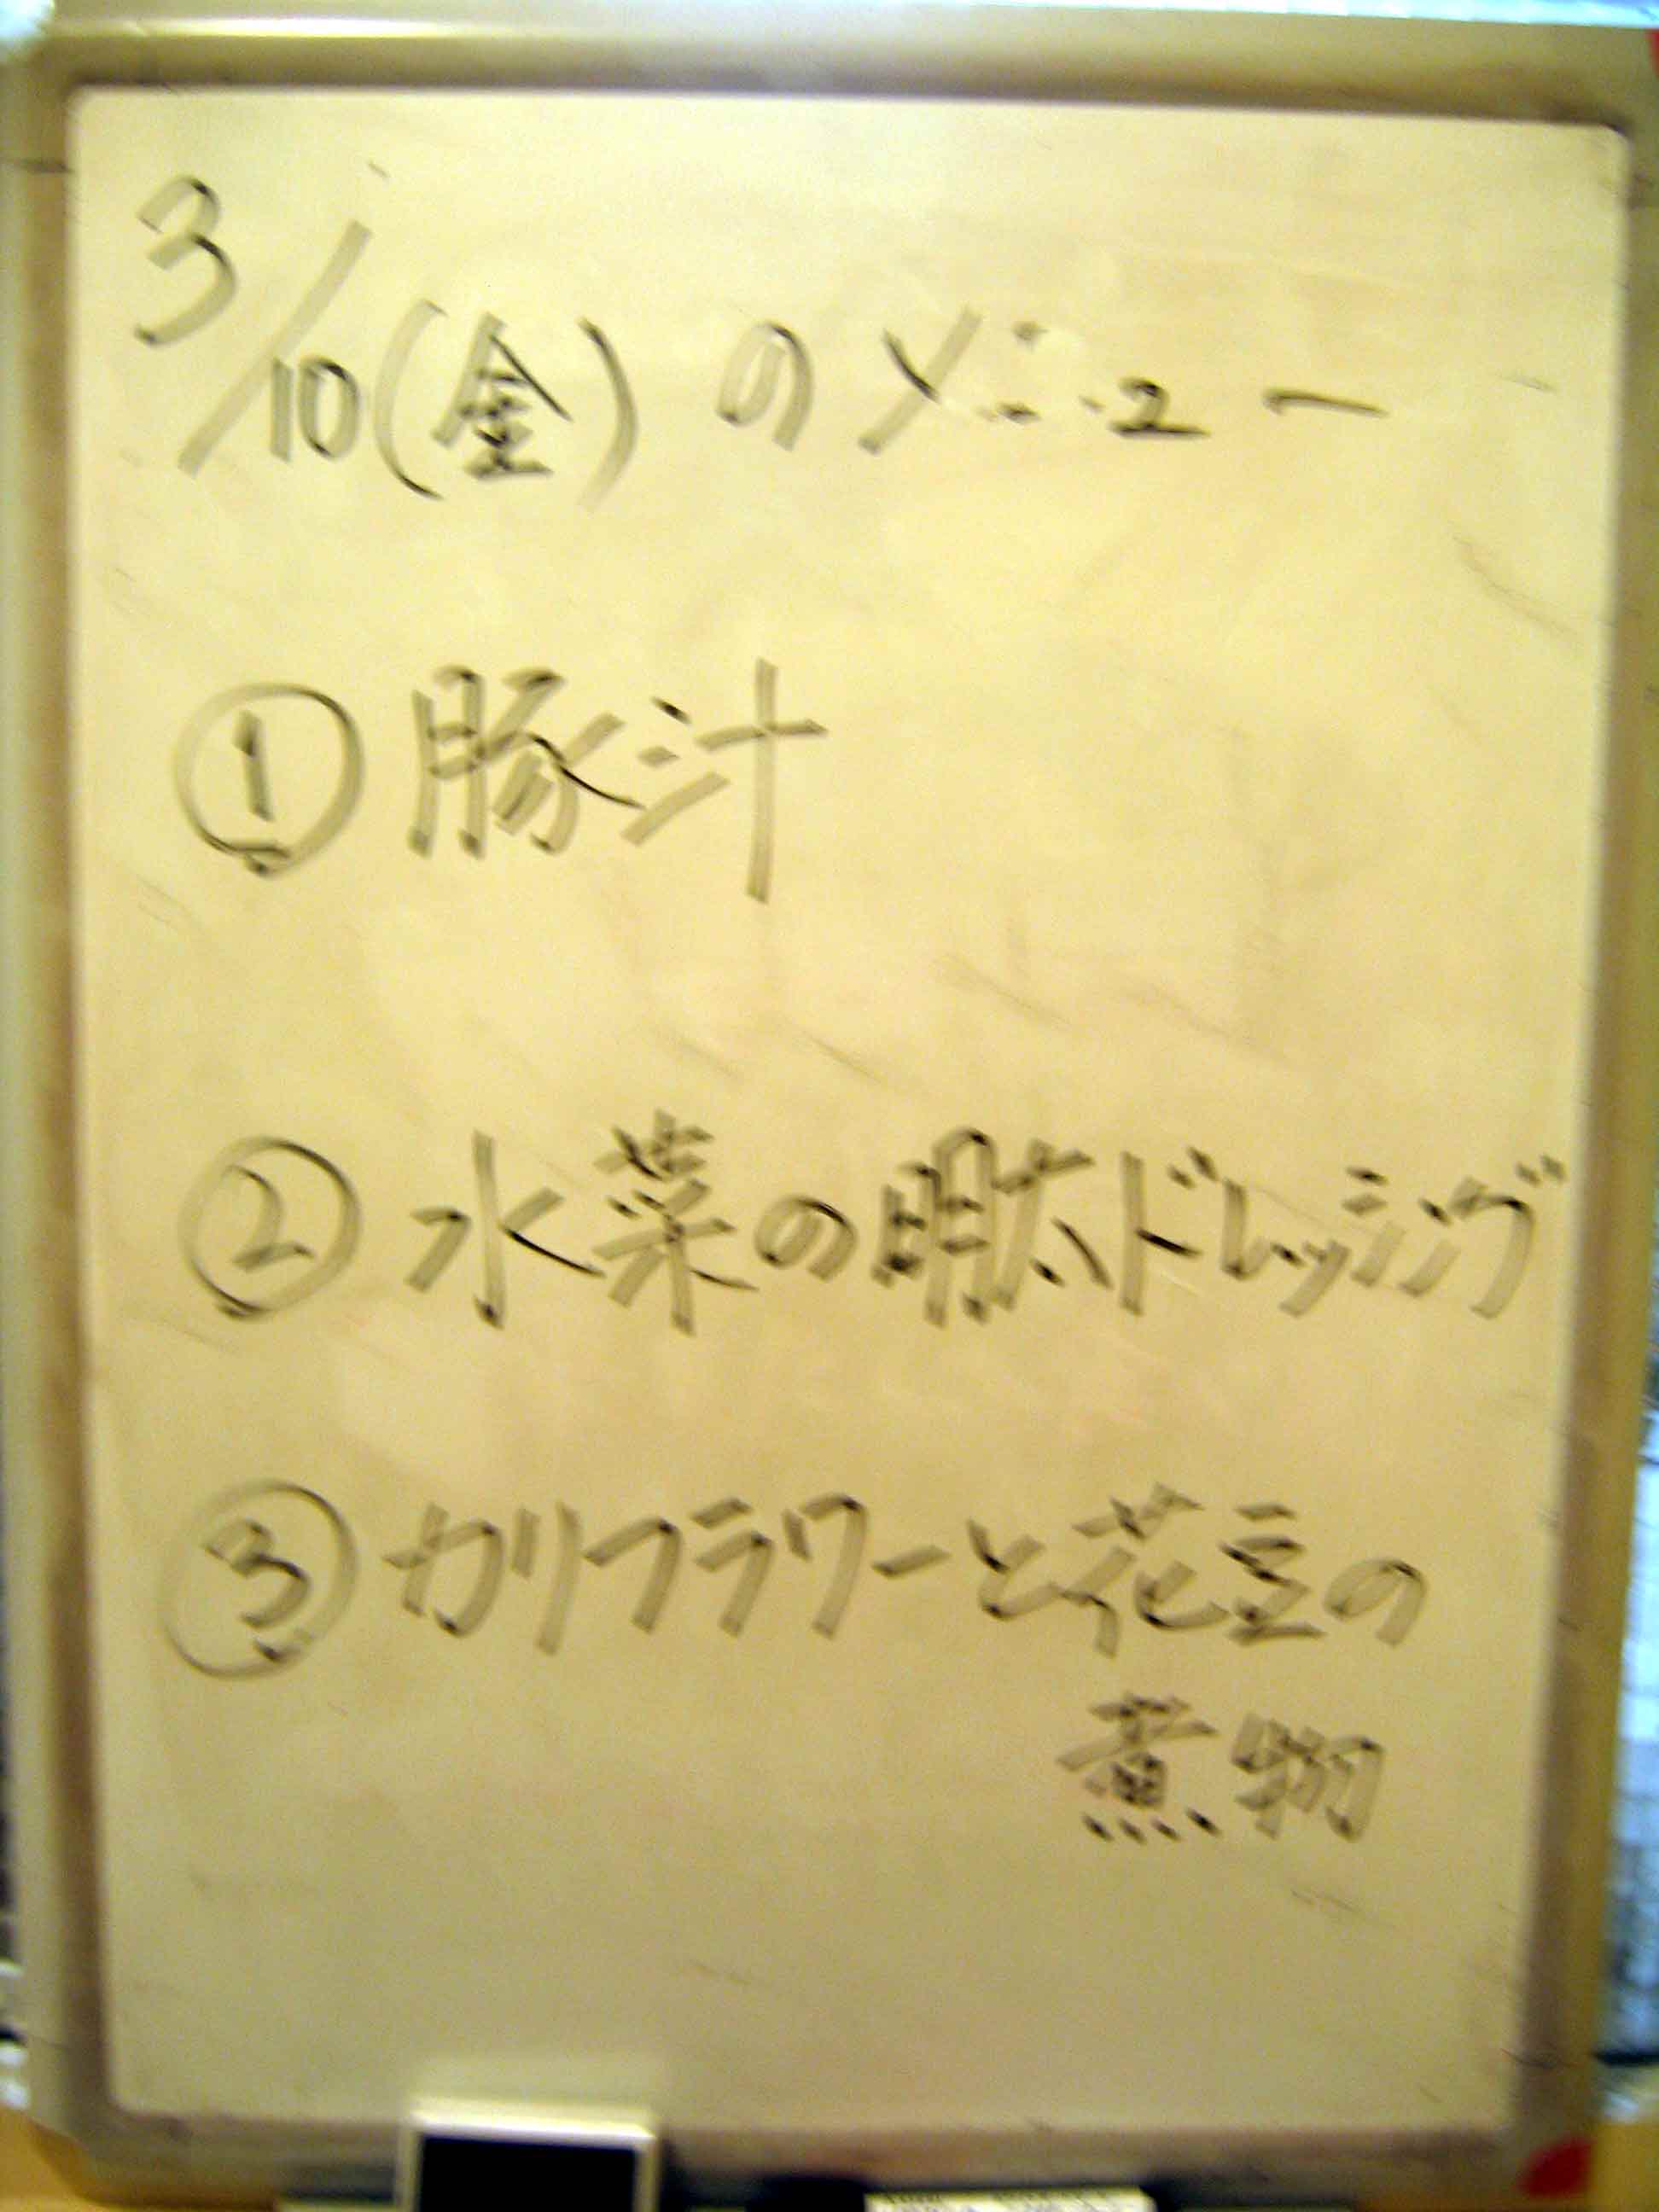 3/10(金)のメニュー
①豚汁
②水菜の明太ドレッシング
③カリフラワーと花豆の
煮物